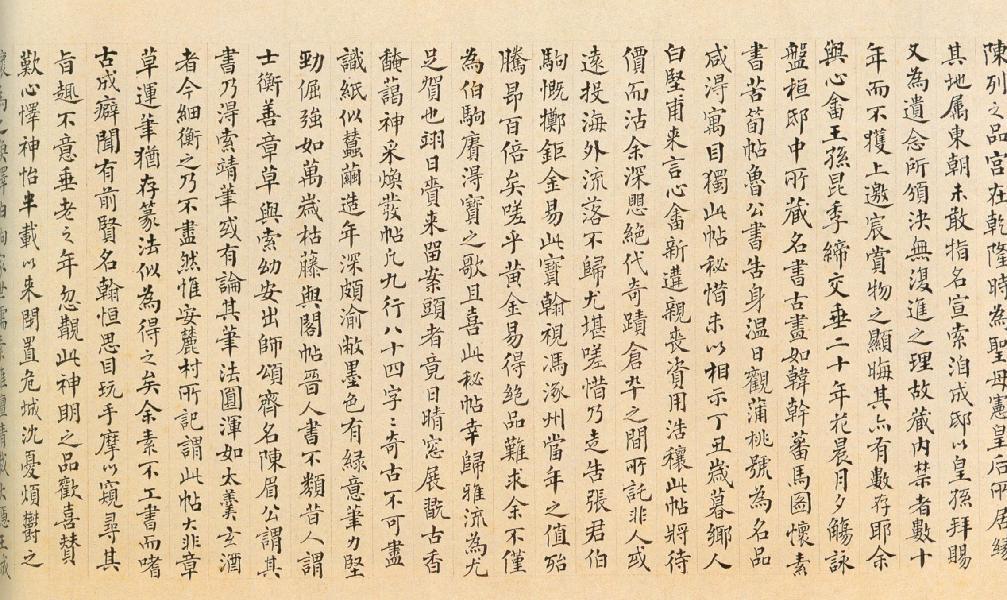 陳列之品宮在乾隆時為聖母憲皇后所居緣
其地屬東朝未敢指名宣索洎成邸以皇孫拜賜
又為遺念所頒決無復進之理故藏內禁者數十
年而不獲上邀宸賞物之顯晦其亦有數存耶余
與心畬王孫昆季締交垂二十年花晨月夕觴詠
盤桓邸中所藏名書古畫如韓幹蕃馬圖懷素
書苦筍帖魯公書告身溫日觀蒲桃號為名品
咸得寓目獨此帖秘惜未以相示丁丑歲暮鄉人
白堅甫來言心畬新遘親喪資用浩穰此帖將待
價而沽余深懼絕代奇蹟倉卒之間所託非人或
遠投海外流落不歸尤堪嗟惜乃走告張君伯
駒慨擲鉅金易此寶翰視馮涿州當年之值殆
騰昂百倍矣嗟乎黃金易得絕品難求余不僅
為伯駒賡得寶之歌且喜此秘帖幸歸雅流為尤
足賀也翊日賷來留案頭者竟日晴窓展翫古香
馣藹神采煥發帖凡九行八十四字字奇古不可盡
識紙似蠶繭造年深頗渝敝墨色有綠意筆力堅
勁倔強如萬歲枯藤與閣帖晉人書不類昔人謂
士衡善章草與索幼安出師頌齊名陳眉公謂其
書乃得索靖筆或有論其筆法圓渾如太羹玄酒
者今細衡之乃不盡然惟安麓村所記謂此帖大非章
草運筆猶存篆法似為得之矣余素不工書而嗜
古成癖聞有前賢名翰恒思目玩手摩以窺尋其
旨趣不意垂老之年忽觀此神明之品歡喜贊
歎心懌神怡半載以來閉置危城沈憂煩鬱之